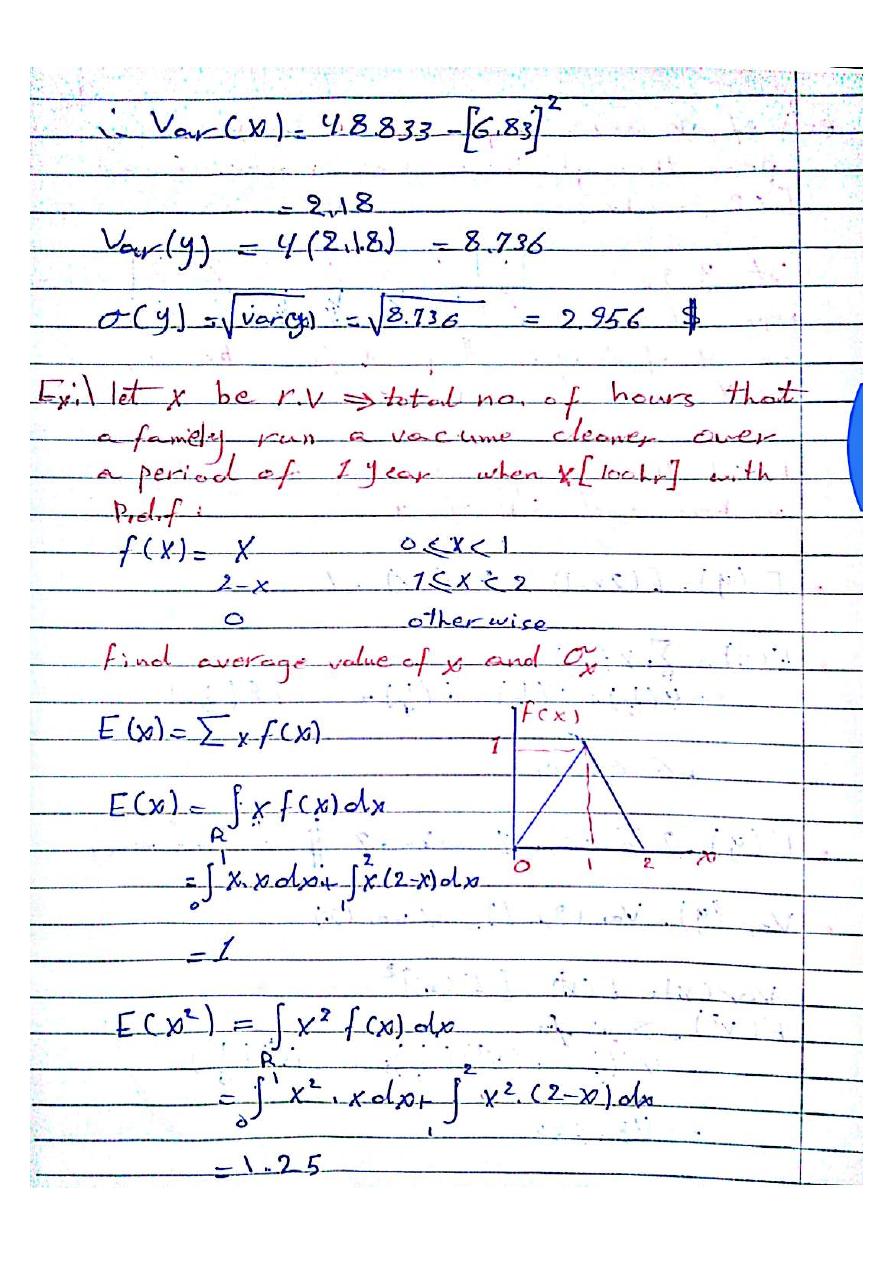 ∴ Var(x) = 48.833 - [6.83]²
= 2.18
Var(y) = 4(2.18) = 8.736
σ(y) = √var(y) = √8.736 = 2.956 $
Ex:\ let x be r.v ⇒ total no. of hours that
a famely run a vacume cleaner over
a period of 1 year when x[100hr] with
P.d.f :
f(x) = x 0 ≤ x < 1
2-x 1 ≤ x < 2
0 otherwise
find average value of x and σx
E(x) = Σ x f(x)
f(x)
1
0 1 2 x
E(x) = ∫R x f(x) dx
= ∫₀¹ x. x dx + ∫₁² x(2-x) dx
= 1
E(x²) = ∫R x² f(x) dx
= ∫₀¹ x² . x dx + ∫₁² x². (2-x) dx
= 1.25